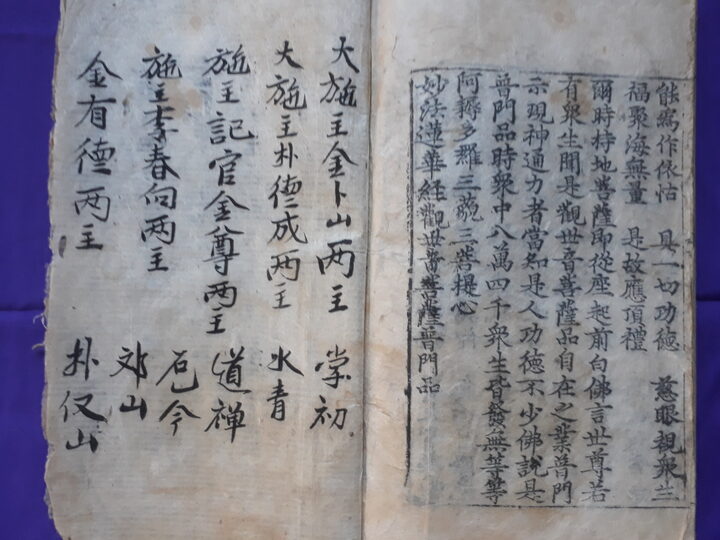 能爲作依怙 具一切功德 慈眼視衆生
福聚海無量 是故應頂禮
爾時持地菩薩即從座起前白佛言世尊若
有衆生聞是觀世音菩薩品自在之業普門
示現神通力者當知是人功德不少佛說是
普門品時衆中八萬四千衆生皆發無等等
阿耨多羅三藐三菩提心
妙法蓮華經觀世音菩薩普門品
大施主金卜山两主 常初
大施主朴德成两主 水青
施主記官金尊两主 道禅
施主李春向两主 石今
金有德两主 山
朴仅山